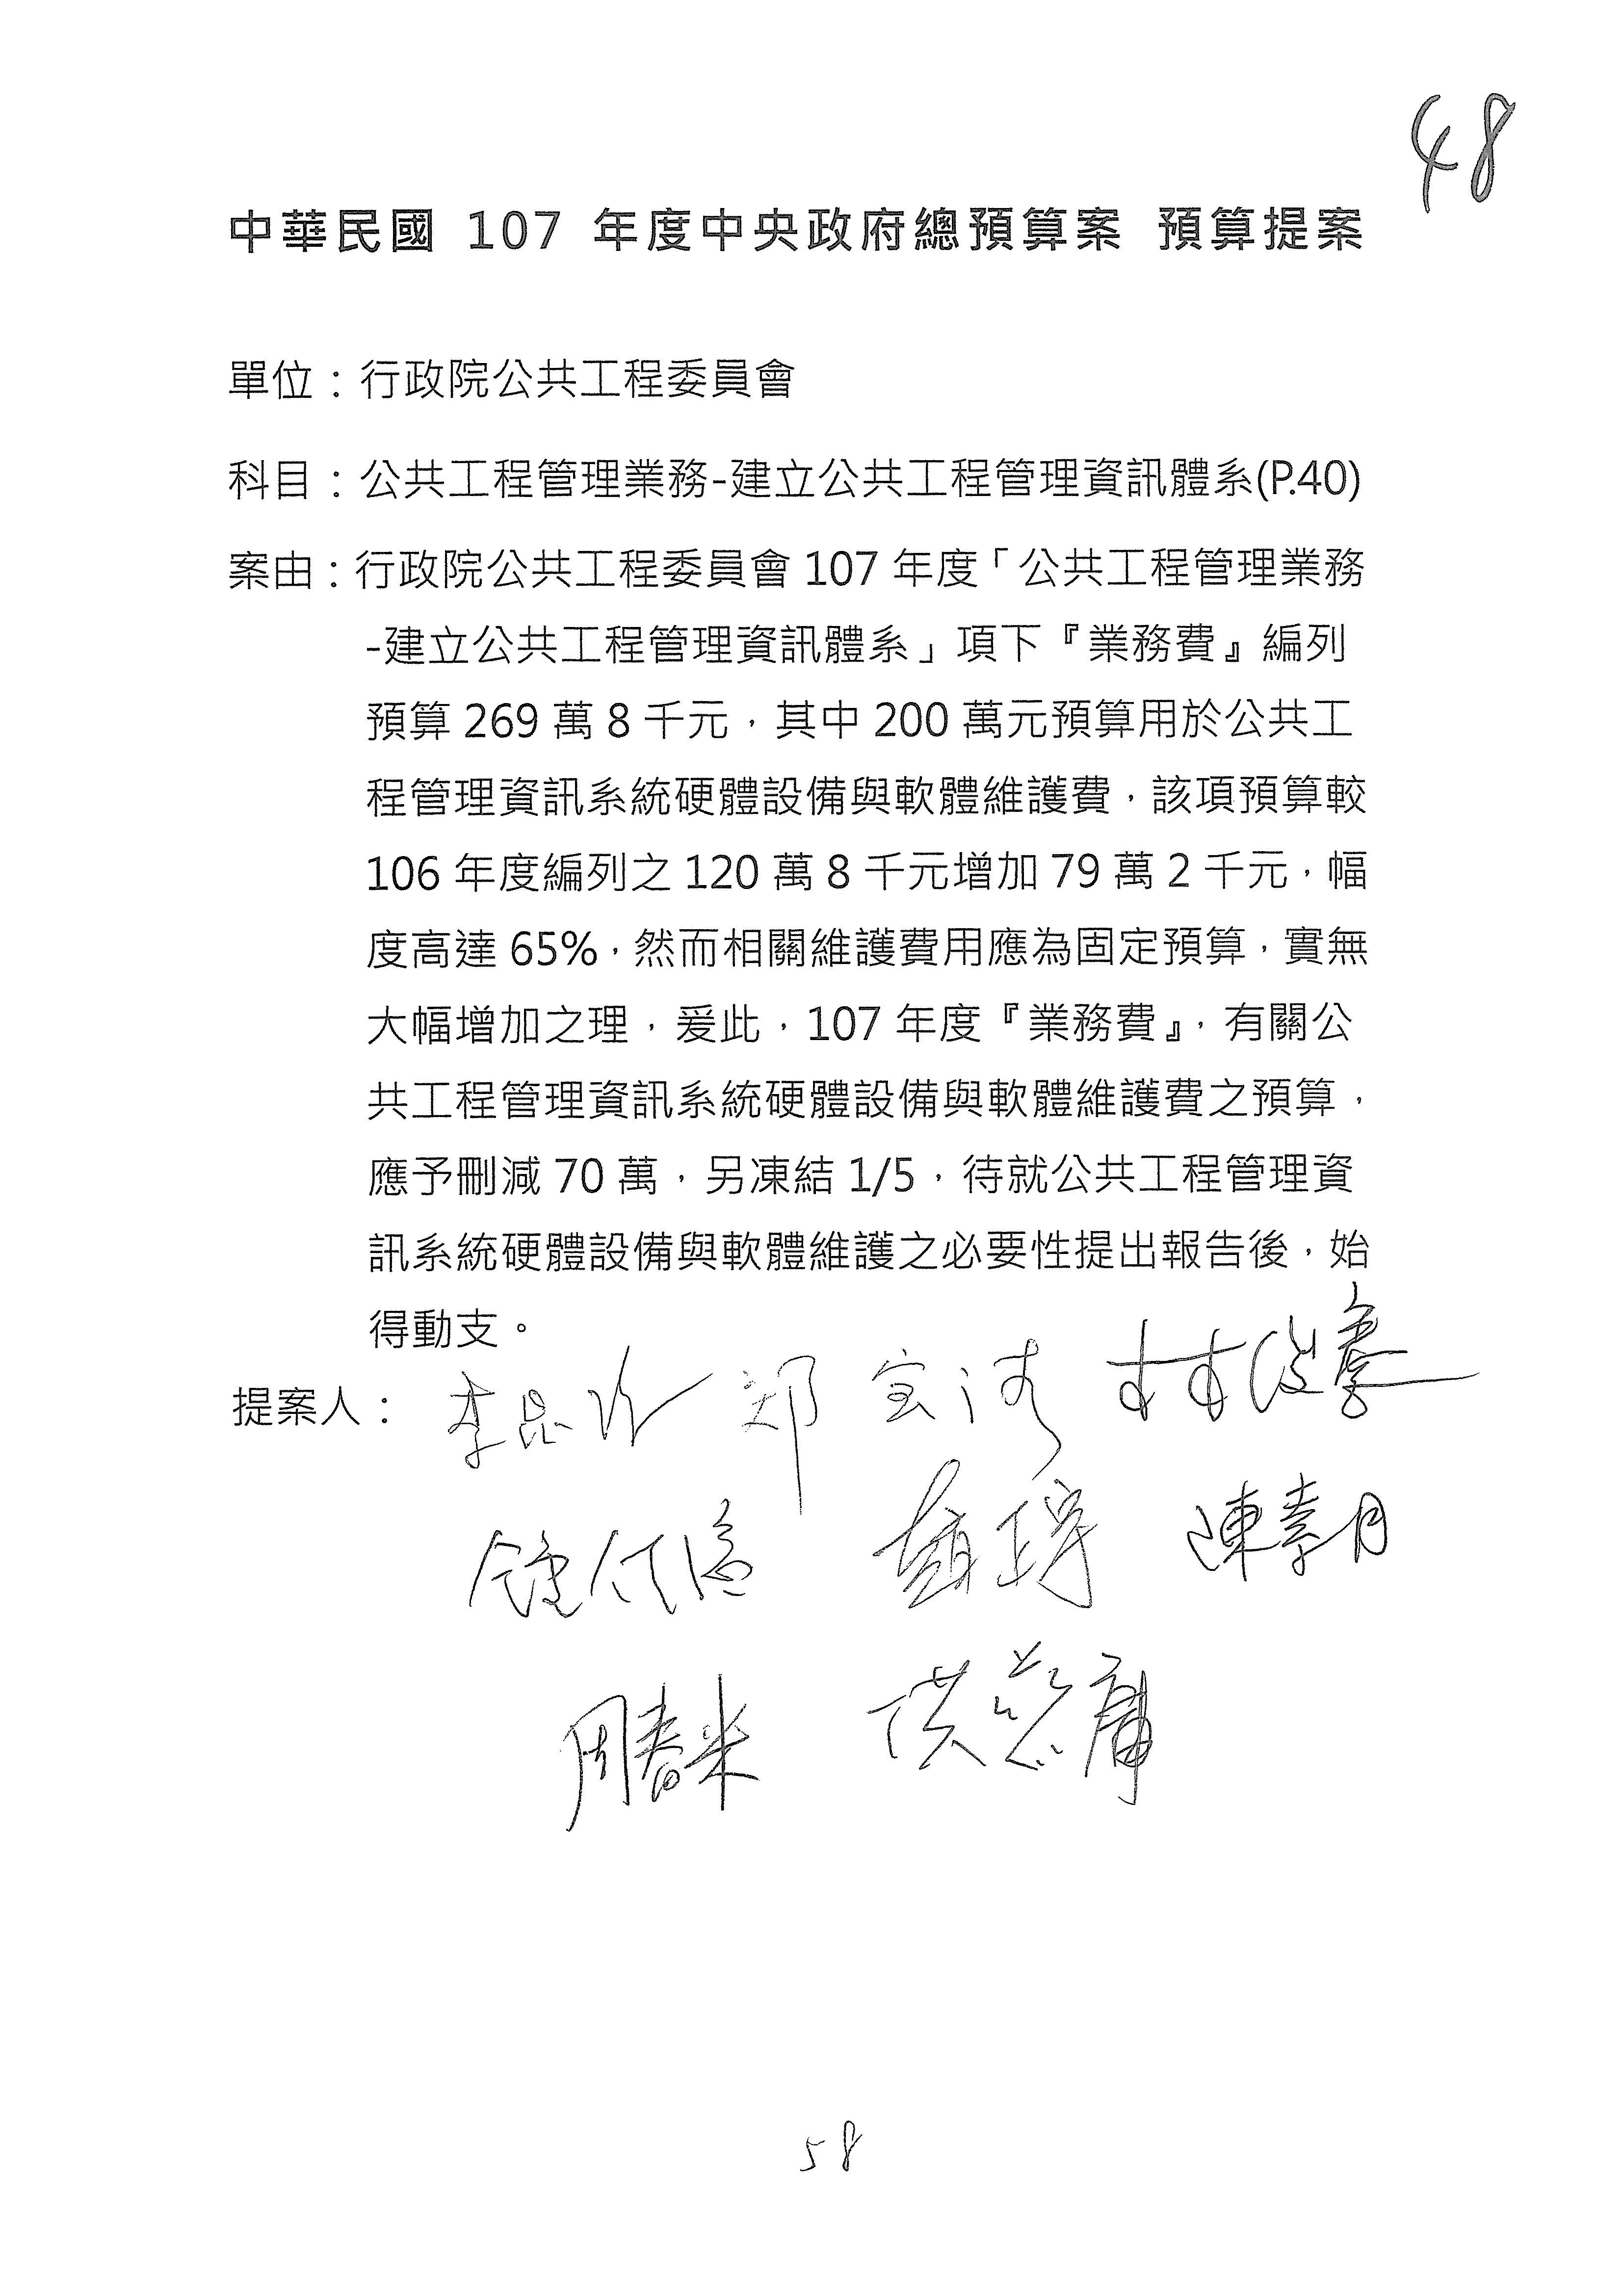 48
中華民國 107 年度中央政府總預算案 預算提案
單位：行政院公共工程委員會
科目：公共工程管理業務-建立公共工程管理資訊體系(P.40)
案由：行政院公共工程委員會 107 年度「公共工程管理業務
-建立公共工程管理資訊體系」項下『業務費』編列
預算 269 萬 8 千元，其中 200 萬元預算用於公共工
程管理資訊系統硬體設備與軟體維護費，該項預算較
106 年度編列之 120 萬 8 千元增加 79 萬 2 千元，幅
度高達 65%，然而相關維護費用應為固定預算，實無
大幅增加之理，爰此，107 年度『業務費』，有關公
共工程管理資訊系統硬體設備與軟體維護費之預算，
應予刪減 70 萬，另凍結 1/5，待就公共工程管理資
訊系統硬體設備與軟體維護之必要性提出報告後，始
得動支。
提案人： 李昆 鄭宝清 林俊憲
陳素月
周春米 洪慈庸
58